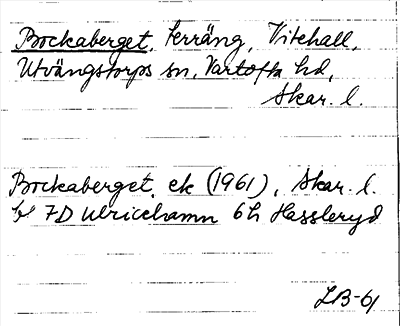 Bockaberget, terräng, Vitehall,
Utvängstorps sn, Vartofta hd,
Skar. l.
Bockaberget, ek (1961), Skar. l.
bl 7D Ulricehamn 6h Hassleryd
LB-61